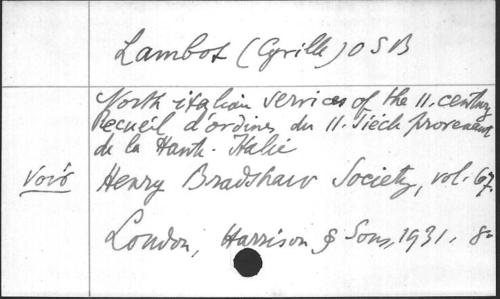 Lambot (Cyrille) O S B
North italian services of the 11. century
Recueil d'ordines du 11. siècle provenant
de la Haute-Italie
Henry Bradshaw Society, vol. 67.
London, Harrison & Sons, 1931. 8°